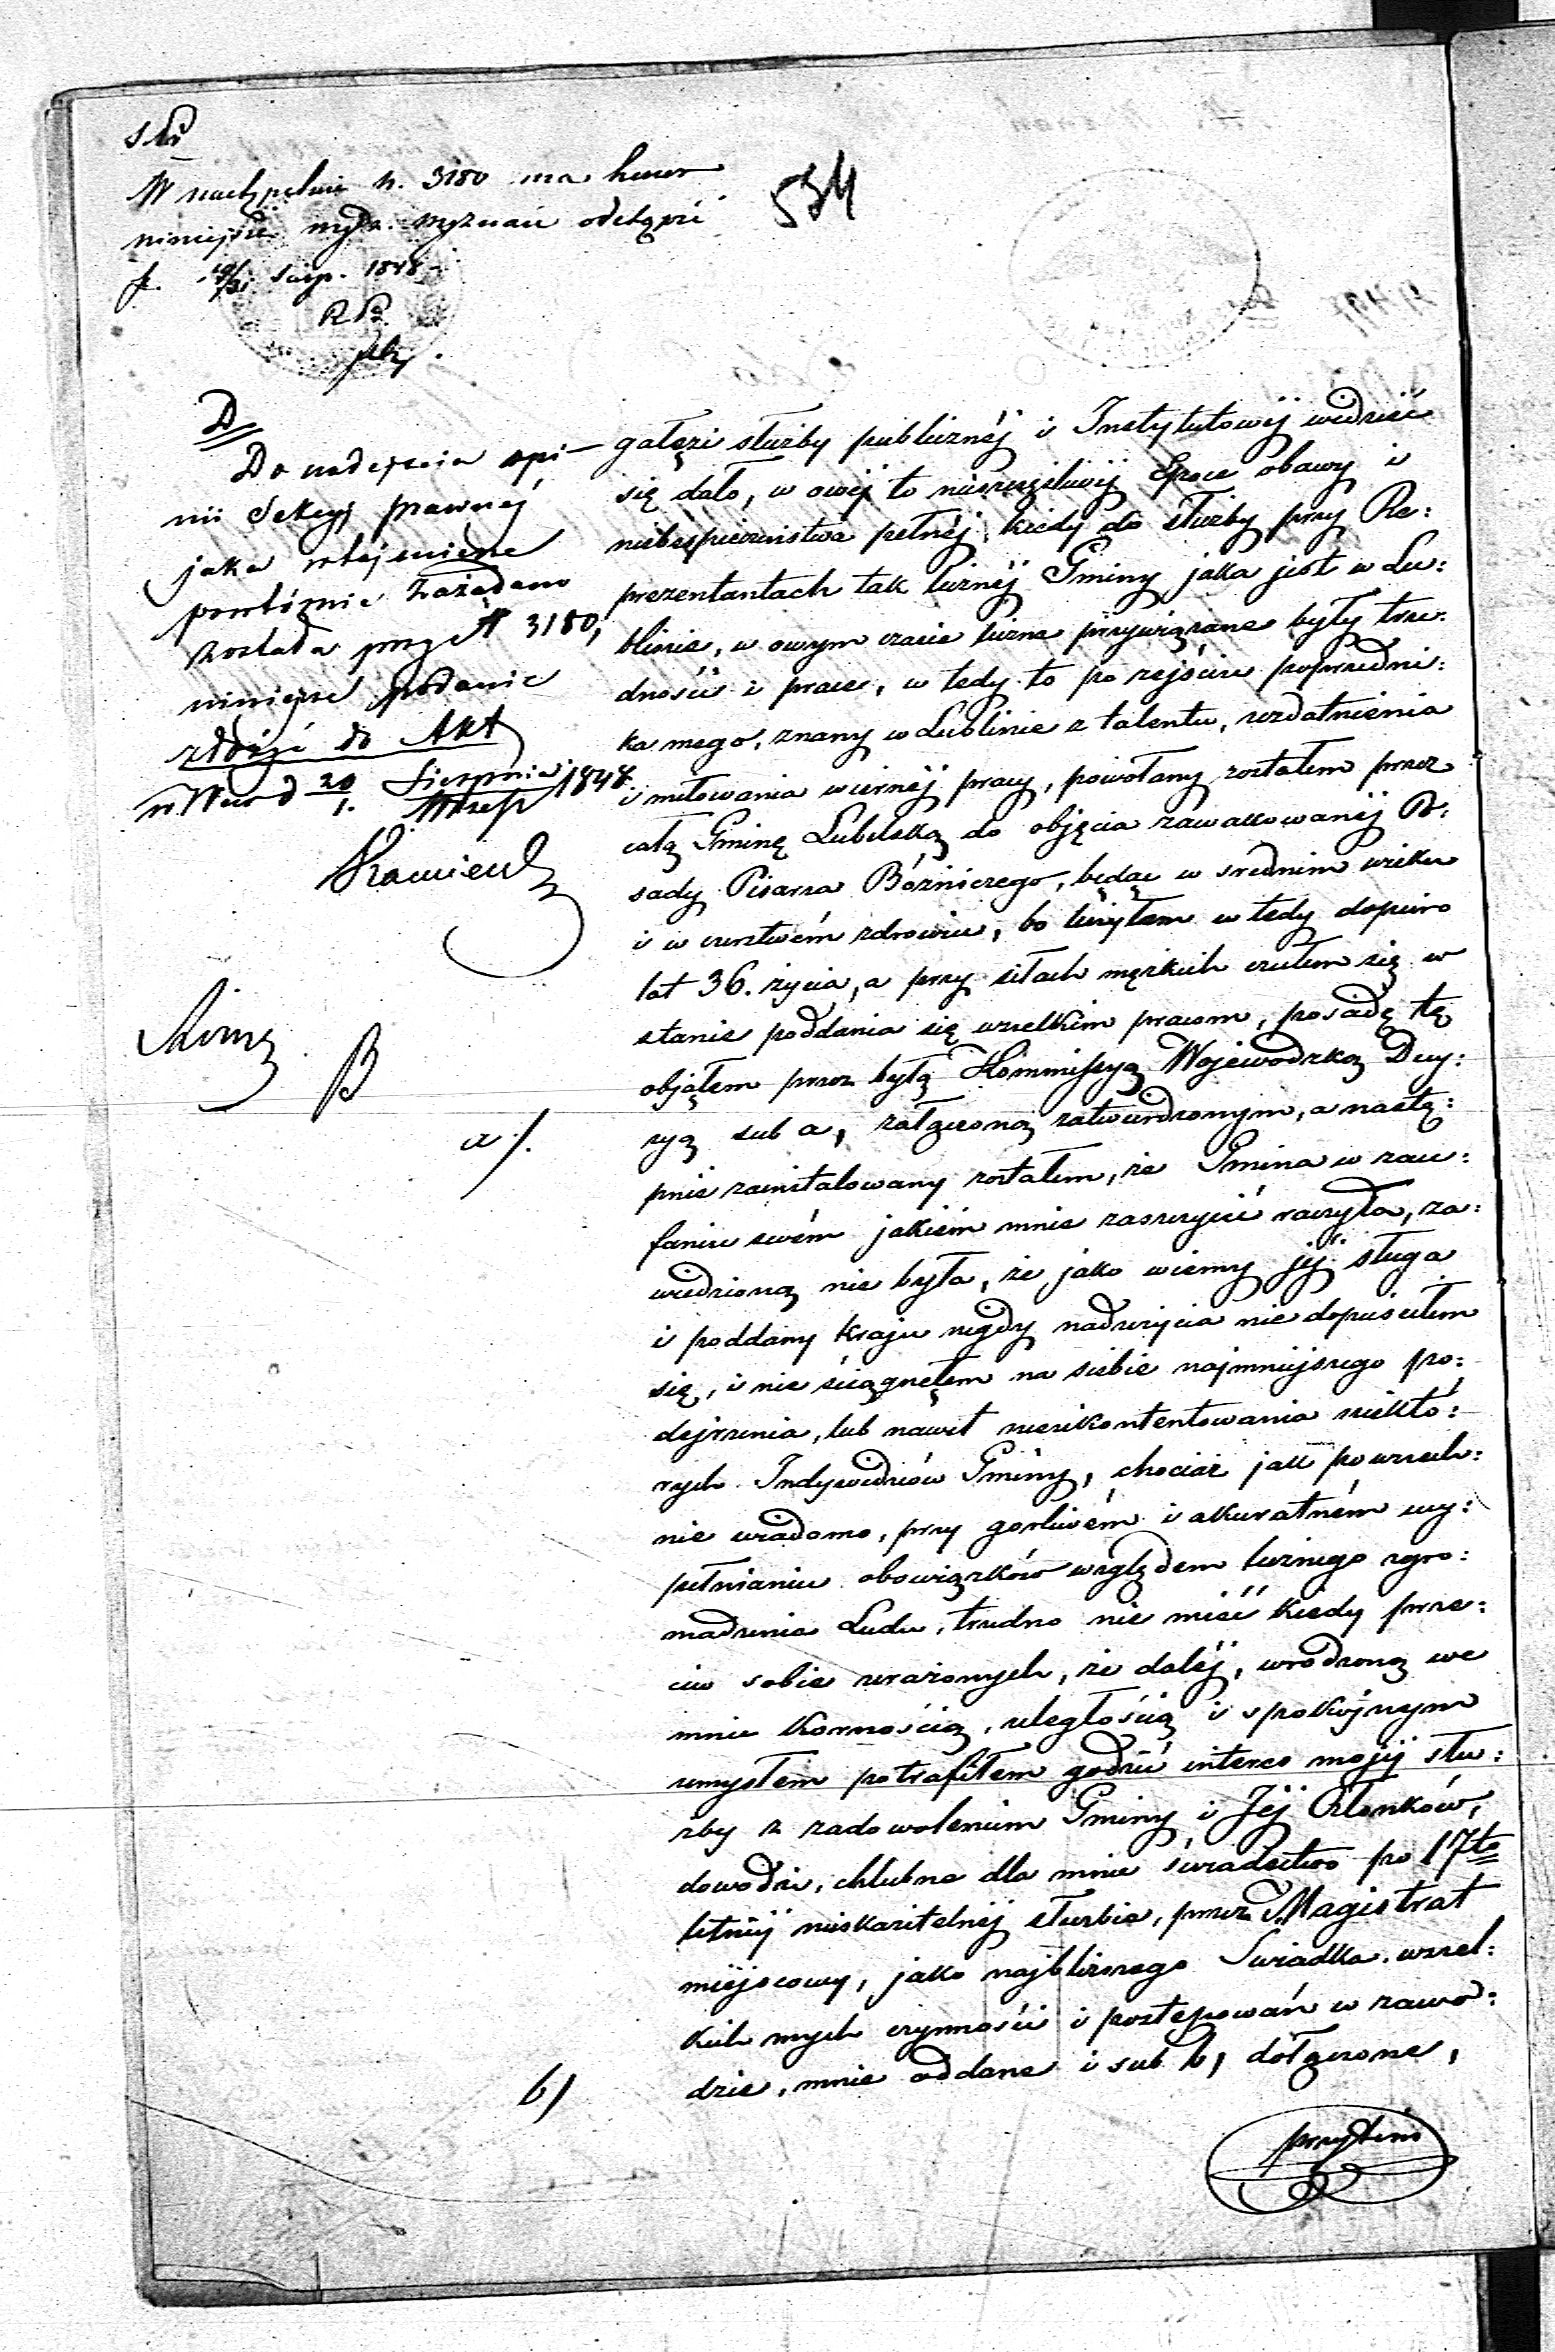 534
W nr 3180 ma
niniejsze odstąpić
Sierp. 1848
D
Do nadejścia opi-
nii Sekcyi prawnej
jaka
powtórnie zażądano
została przez N 3180,
niniejsze podanie
złożyć do Akt
d 20/1. Sierpnia/Wrześ 1848
B
a/.
gałęzi służby publicznéj i Instytutowéj widzieć
się dało, w owéj to nieszczęśliwéj Epoce obawy i
niebespieczeństwa pełnéj, kiedy do służby przy Re:
prezentantach tak licznéj Gminy jaka jest w Lu:
blinie, w owym czasie liczne przywiązane były tru:
dności i prace, w tedy to po zejściu poprzedni:
ka mego, znany w Lublinie z talentu, uzdatnienia
i miłowania wiernéj pracy, powołany zostałem przez
całą Gminę Lubelską do objęcia zawakowanéj Po:
sady Pisarza Bóżniczego, będąc w srednim wieku
i w czerstwém zdrowiu, bo liczyłem w tedy dopiero
lat 36. życia, a przy siłach męzkich czułem się w
stanie poddania się wszelkim pracom, posadę tę
objąłem przez byłą Kommissyą Wojewodzką Decy:
zyą sub a, załączoną zatwierdzonym, a nastę:
pnie zainstalowany zostałem, że Gmina w zau:
faniu swém jakiém mnie zaszczycić raczyła, za:
wiedzioną nie była, że jako wierny jéj sługa
i poddany Kraju nigdy nadużycia nie dopuściłem
się, i nie ściągnęłem na siebie najmniejszego po:
dejrzenia, lub nawet nieukontentowania niektó:
rych Indywiduów Gminy, chociaż jak powszech:
nie wiadomo, przy gorliwém i akuratném wy:
pełnianiu obowiązków względem licznego zgro:
madzenia Ludu, trudno nie mieć kiedy prze:
ciw sobie urażonych, że daléj, wrodzoną we
mnie kornością, uległością i spokójnym
umysłem potrafiłem godzić interes mojéj słu:
żby z zadowoleniem Gminy i Jéj Członków,
dowodzi, chlubne dla mnie świadectwo po 17to
letniéj nieskazitelnéj służbie, przez Magistrat
miejscowy, jako najbliższego Swiadka wszel:
kich mych czynności i postępowań w zawo:
dzie, mnie oddane i sub b, dołączone,
b/